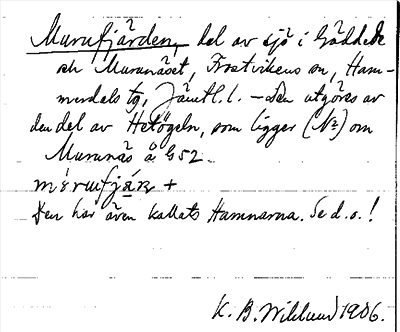 Murufjärden, del av sjö i Gäddede
och Murunäset, Frostvikens sn, Ham-
merdals tg, Jämtl. l. – Den utgöres av
den del av Hetögeln, som ligger (N) om
Murunäs å G 52.
mérufjàṛ +
Den har även kallats Hamnarna. Se d.o.!
K. B. Wiklund 1906.